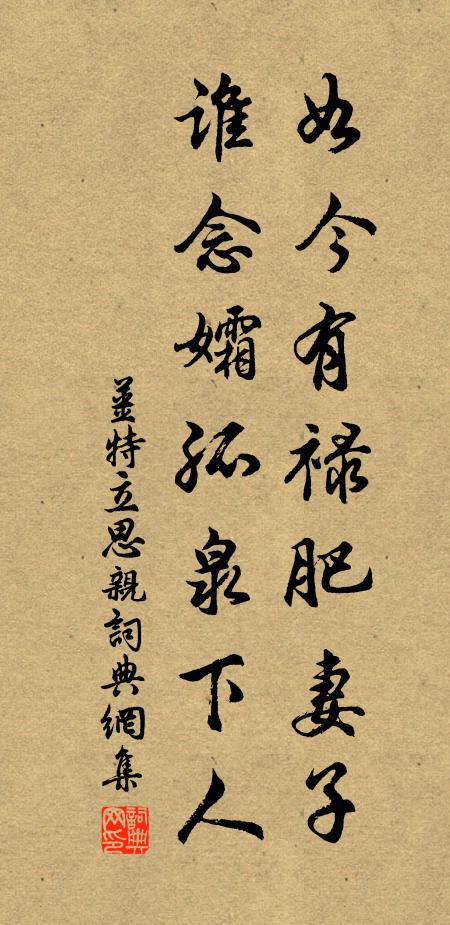 如今有禄肥妻子
谁念孀孤泉下人
姜特立思親詞典網集
詞典網印